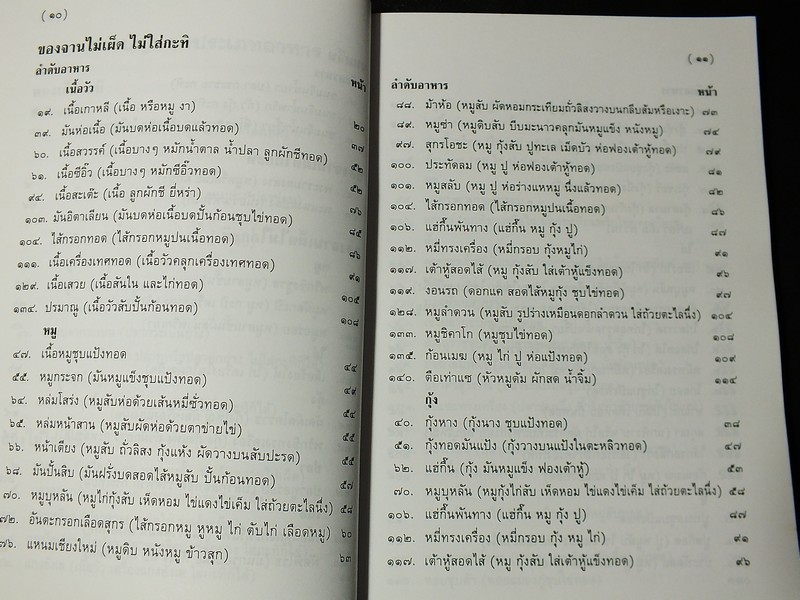 (๑๐)
ของจานไม่เผ็ด ไม่ใส่กะทิ
ลำดับอาหาร
หน้า
เนื้อวัว
๑๙. เนื้อเกาหลี (เนื้อ หรือหมู งา) ๒๐
๓๙. มันห่อเนื้อ (มันบดห่อเนื้อบดแล้วทอด) ๓๗
๖๐. เนื้อสวรรค์ (เนื้อบางๆ หมักน้ำตาล น้ำปลา ลูกผักชีทอด) ๕๒
๖๑. เนื้อซีอิ๊ว (เนื้อบางๆ หมักซีอิ๊วทอด) ๕๒
๙๔. เนื้อสะเต๊ะ (เนื้อ ลูกผักชี ยี่หร่า) ๗๖
๑๐๓. มันอิตาเลียน (มันบดห่อเนื้อบดปั้นก้อนชุบไข่ทอด) ๘๕
๑๐๔. ไส้กรอกทอด (ไส้กรอกหมูปนเนื้อทอด) ๘๖
๑๑๑. เนื้อเครื่องเทศทอด (เนื้อวัวคลุกเครื่องเทศทอด) ๙๑
๑๒๙. เนื้อเสวย (เนื้อสันใน และไก่ทอด) ๑๐๕
๑๓๔. ปรมาณู (เนื้อวัวสับปั้นก้อนทอด) ๑๐๘
หมู
๔๗. เนื้อหมูชุบแป้งทอด ๔๔
๕๕. หมูกระจก (มันหมูแข็งชุบแป้งทอด) ๔๙
๖๔. หล่มโสร่ง (หมูสับห่อด้วยเส้นหมี่ซั่วทอด) ๕๔
๖๕. หล่มหน้าสาน (หมูสับผัดห่อด้วยตาข่ายไข่) ๕๕
๖๖. หน้าเดียง (หมูสับ ถั่วลิสง กุ้งแห้ง ผัดวางบนสับปะรด) ๕๕
๖๘. มันปั้นสิบ (มันฝรั่งบดสอดไส้หมูสับ ปั้นก้อนทอด) ๕๗
๗๐. หมูบุหลัน (หมูไก่กุ้งสับ เห็ดหอม ไข่แดงไข่เค็ม ใส่ถ้วยตะไลนึ่ง) ๕๘
๗๒. อันตะกรอกเลือดสุกร (ไส้กรอกหมู หูหมู ไก่ ตับไก่ เลือดหมู) ๖๐
๗๖. แหนมเชียงใหม่ (หมูดิบ หนังหมู ข้าวสุก) ๖๓
(๑๑)
ลำดับอาหาร
หน้า
๘๘. ม้าห้อ (หมูสับ ผัดหอมกระเทียมถั่วลิสงวางบนกลีบส้มหรือเงาะ) ๗๓
๘๙. หมูซ่า (หมูดิบสับ บีบมะนาวคลุกมันหมูแข็ง หนังหมู) ๗๔
๙๗. สุกรโอชะ (หมู กุ้งสับ ปูทะเล เม็ดบัว ห่อฟองเต้าหู้ทอด) ๗๙
๑๐๐. ประทัดลม (หมู ปู ห่อฟองเต้าหู้ทอด) ๘๑
๑๐๑. หมูสลับ (หมู ปู ห่อร่างแหหมู นึ่งแล้วทอด) ๘๒
๑๐๔. ไส้กรอกทอด (ไส้กรอกหมูปนเนื้อทอด) ๘๖
๑๐๖. แฮ่กึ๊นพันทาง (แฮ่กึ๊น หมู กุ้ง ปู) ๘๗
๑๑๒. หมี่ทรงเครื่อง (หมี่กรอบ กุ้งหมูไก่) ๙๑
๑๑๗. เต้าหู้สอดไส้ (หมู กุ้งสับ ใส่เต้าหู้แข็งทอด) ๙๖
๑๑๙. งอนรถ (ดอกแค สอดไส้หมูกุ้ง ชุบไข่ทอด) ๙๗
๑๒๘. หมูลำดวน (หมูสับ รูปร่างเหมือนดอกลำดวน ใส่ถ้วยตะไลนึ่ง) ๑๐๔
๑๓๓. หมูชิคาโก (หมูชุบไข่ทอด) ๑๐๘
๑๓๕. ก้อนเมฆ (หมู ไก่ ปู ห่อแป้งทอด) ๑๐๙
๑๔๐. ตือเท่าแซ (หัวหมูต้ม ผักสด น้ำจิ้ม) ๑๑๔
กุ้ง
๔๐. กุ้งหาง (กุ้งนาง ชุบแป้งทอด) ๓๘
๕๑. กุ้งทอดมันแป้ง (กุ้งวางบนแป้งในตะหลิวทอด) ๔๗
๖๒. แฮ่กึ๊น (กุ้ง มันหมูแข็ง ฟองเต้าหู้) ๕๓
๗๐. หมูบุหลัน (หมูกุ้งไก่สับ เห็ดหอม ไข่แดงไข่เค็ม ใส่ถ้วยตะไลนึ่ง) ๕๘
๑๐๖. แฮ่กึ๊นพันทาง (แฮ่กึ๊น หมู กุ้ง ปู) ๘๗
๑๑๒. หมี่ทรงเครื่อง (หมี่กรอบ กุ้ง หมู ไก่) ๙๑
๑๑๗. เต้าหู้สอดไส้ (หมู กุ้งสับ ใส่เต้าหู้แข็งทอด) ๙๖